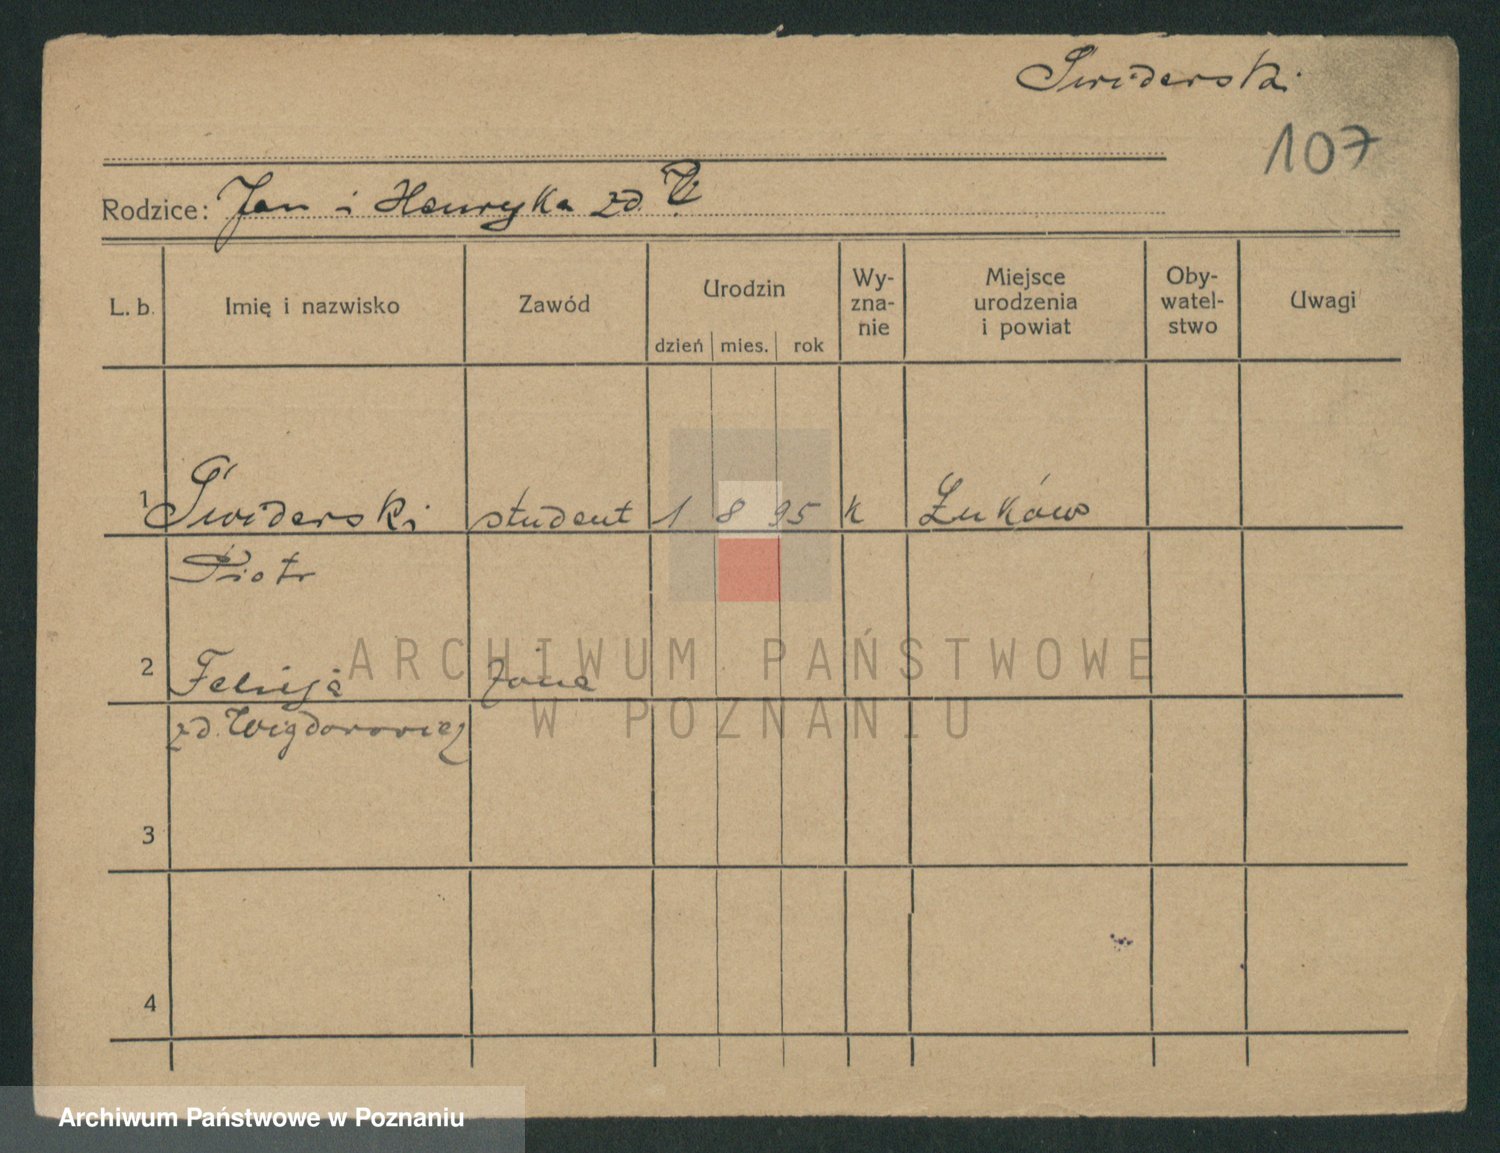 Swiderski
107
Rodzice: Jan i Henryka zd. ?
L. b. Imię i nazwisko Zawód Urodzin Wy-zna-nie Miejsce urodzenia i powiat Oby-watel-stwo Uwagi
dzień mies. rok
1 Świderski student 1 8 95 k Łuków
Piotr
2 Felicja żona
zd. Wigdorowicz
3
4
ARCHIWUM PAŃSTWOWE
W POZNANIU
Archiwum Państwowe w Poznaniu